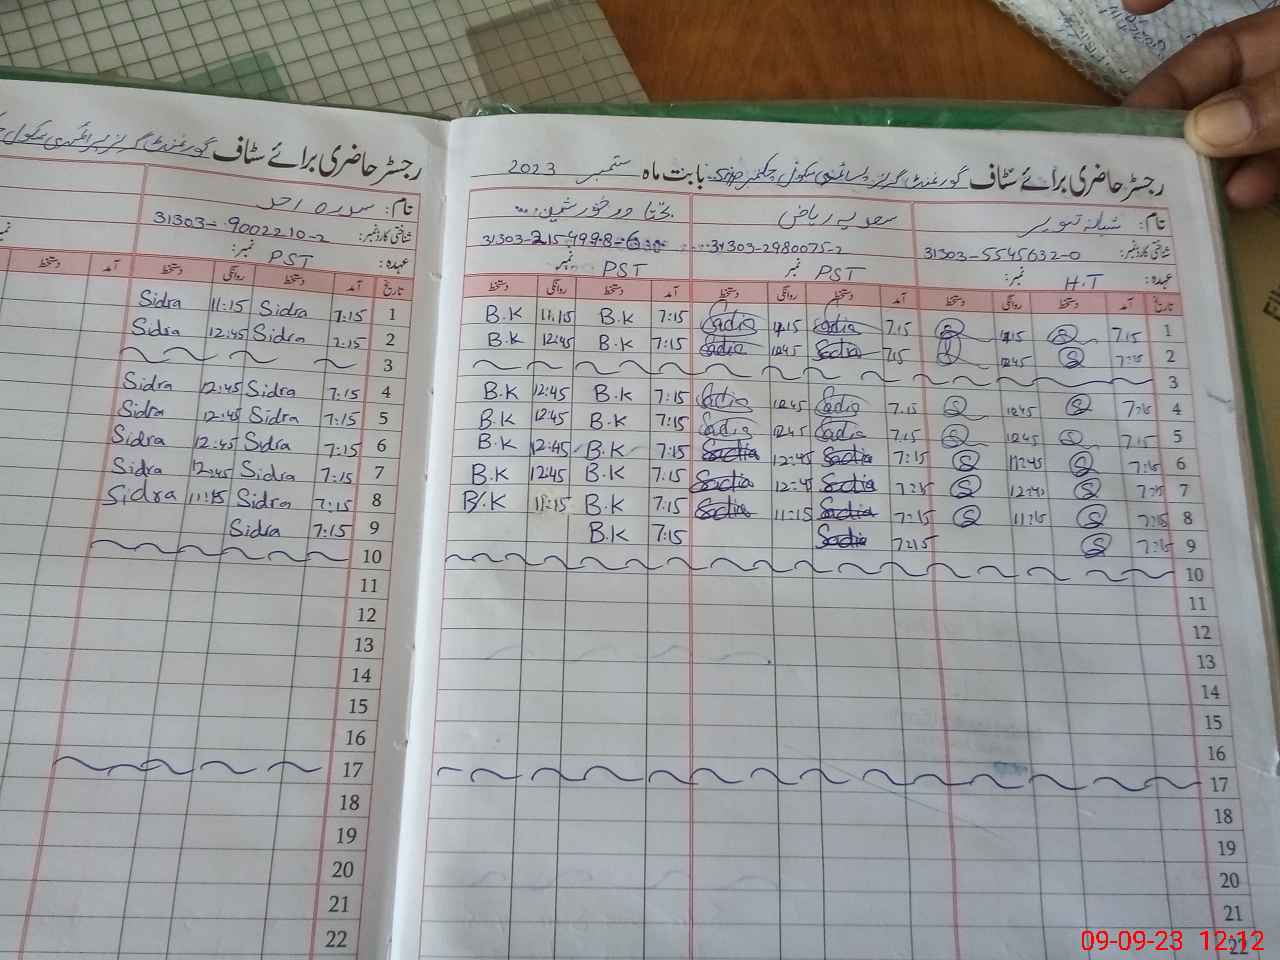 رجسٹر حاضری برائے سٹاف گورنمنٹ گرلز پرائمری سکول بابت ماہ ستمبر 2023
نام: شبانہ
سعدیہ ریاض
شناختی کارڈ نمبر: 31303-5545632-0
31303-2980075-2
عہدہ: H.T نمبر:
PST نمبر
PST نمبر
تاریخ آمد دستخط روانگی دستخط آمد دستخط روانگی دستخط آمد دستخط روانگی دستخط
1 7:15 7:15 Sadia Sadia 7:15 B.K 11:15 B.K
2 7:15 12:45 Sadia 12:45 Sadia 7:15 B.K 12:45 B.K
3
4 7:15 12:45 7:15 Sadia 12:45 Sadia 7:15 B.K 12:45 B.K
5 7:15 12:45 7:15 Sadia 12:45 Sadia 7:15 B.K 12:45 B.K
6 7:15 7:15 Sadia 12:45 Sadia 7:15 B.K 12:45 B.K
7 7:15 7:15 Sadia 12:45 Sadia 7:15 B.K 12:45 B.K
8 7:15 11:15 7:15 Sadia 11:15 Sadia 7:15 B.K 11:15 B.K
9 7:15 7:15 Sadia 7:15 B.K
10
11
12
13
14
15
16
17
18
19
20
21
22
رجسٹر حاضری برائے سٹاف گورنمنٹ گرلز پرائمری سکول
نام: سدرہ احمد
شناختی کارڈ نمبر: 31303-9002210-2
عہدہ: PST نمبر:
تاریخ آمد دستخط روانگی دستخط آمد دستخط
1 7:15 Sidra 11:15 Sidra
2 7:15 Sidra 12:45 Sidra
3
4 7:15 Sidra 12:45 Sidra
5 7:15 Sidra 12:45 Sidra
6 7:15 Sidra 12:45 Sidra
7 7:15 Sidra 12:45 Sidra
8 7:15 Sidra 11:15 Sidra
9 7:15 Sidra
10
11
12
13
14
15
16
17
18
19
20
21
22
09-09-23 12:12